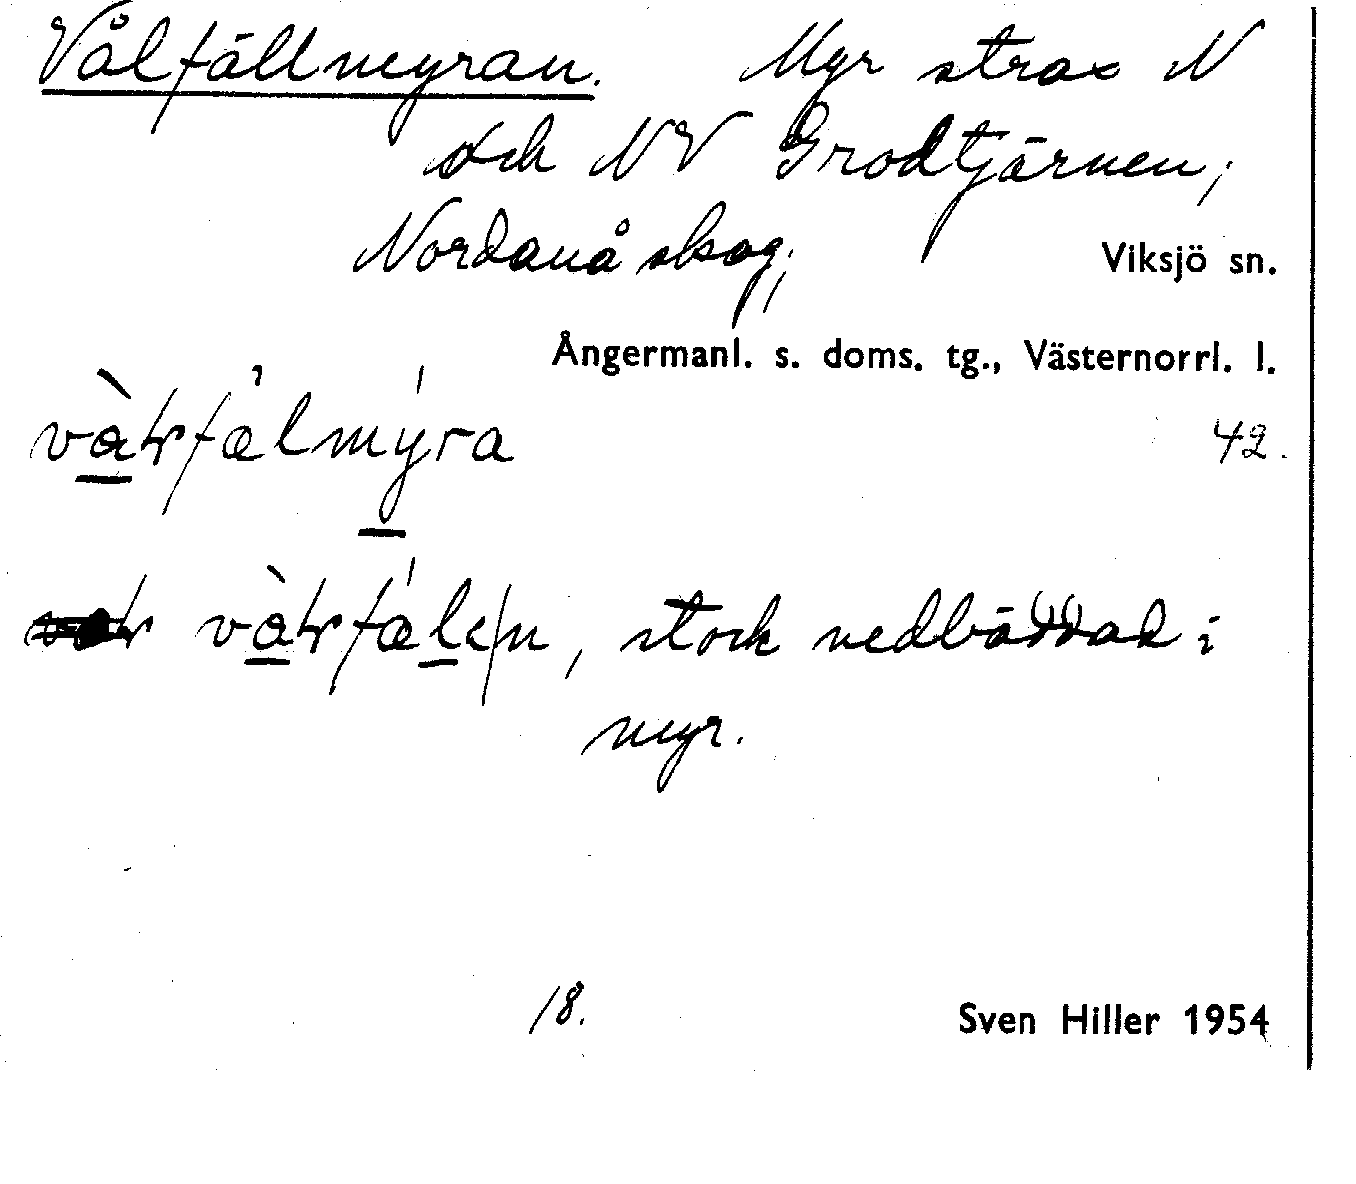 Vålfällmyran. Myr strax N
och NV Grodtjärnen,
Nordanå skog, Viksjö sn.
Ångermanl. s. doms. tg., Västernorrl. l.
42.
, stock nedbäddad i
myr.
18. Sven Hiller 1954